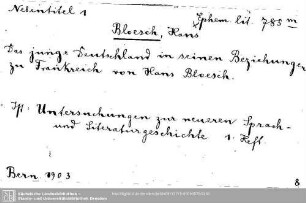 Nebentitel 1
Ephem. lit. 785 m
Bloesch, Hans
Das junge Deutschland in seinen Beziehungen
zu Frankreich von Hans Bloesch.
Ist: Untersuchungen zur neueren Sprach-
und Literaturgeschichte 1. Heft
Bern 1903
8